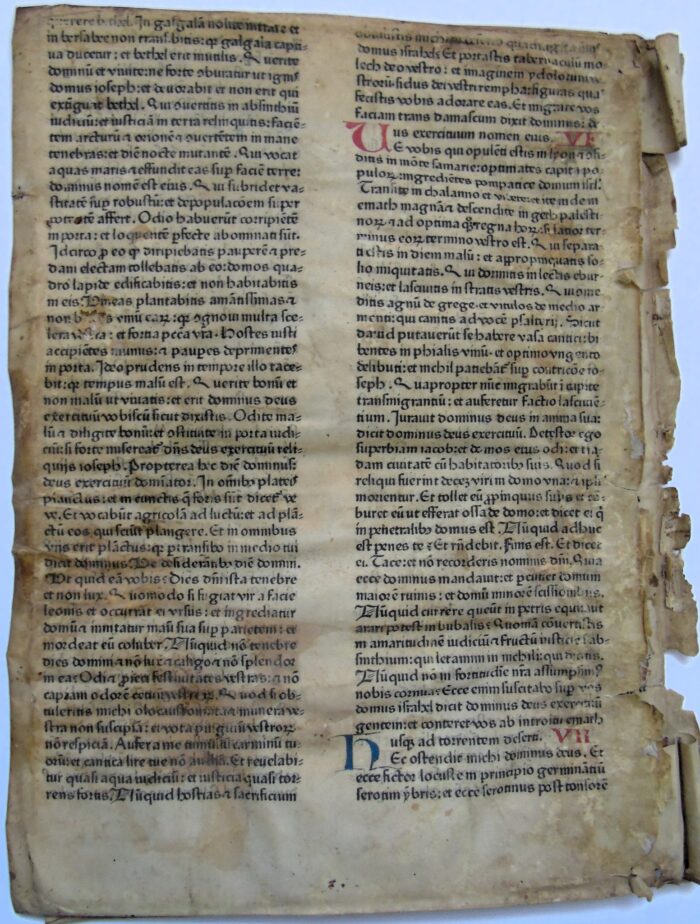 querere bethel. In galgala nolite intrare et
in bersabee non transibitis: qꝛ galgala capti=
ua ducetur: et bethel erit inutilis. Querite
dominū et viuite: ne forte cōburatur ut ignis
domus ioseph: et deuorabit et non erit qui
extīguat bethel. Qui cōuertitis in absinthiū
iudiciū: et iusticiā in terra relinquitis: faciē=
tem arcturū ⁊ orionē ⁊ cōuertētem in mane
tenebras: et diē nocte mutantē. Qui vocat
aquas maris ⁊ effundit eas sup faciē terre:
dominus nomē est eius. Qui subridet va=
stitatē sup robustū: et depopulacōem super
potentē affert. Odio habuerūt corripiētē
in porta: et loquentē pfecte abominati sūt.
Idcirco ꝓ eo qꝛ diripiebatis pauperē ⁊ pre=
dam electam tollebatis ab eo: domos qua=
dro lapide edificabitis: et non habitabitis
in eis. Vineas plantabitis amantissimas ⁊
non vinū earꝝ: qꝛ cognoui multa sce=
lera vestra: et fortia pctā vrā. Hostes iusti
accipiētes munus: ⁊ pauꝑes deprimentes
in porta. Ideo prudens in tempore illo tace=
bit: qꝛ tempus malū est. Querite bonū et
non malū ut viuatis: et erit dominus deus
exercituū vobiscū sicut dixistis. Odite ma=
lū ⁊ diligite bonū: et cōstituite in porta iudic=
iū: si forte misereat dn̄s deus exercituū reli=
quijs ioseph. Propterea hec dicit dominus:
deus exercituū domīator. In omībꝫ plateis
planctus: et in cunctis q̄ foris sūt dicet ve
ve. Et vocabūt agricolā ad luctū: et ad plā=
ctū eos qui sciūt plangere. Et in omnibus
vijs erit plāctus: qꝛ ptransibo in medio tui
dicit dominus. Ve desiderātibꝫ diē domini.
Ad quid eā vobis: Dies dn̄i ista tenebre
et non lux. Quomodo si fugiat vir a facie
leonis et occurrat ei vrsus: et ingrediatur
domū ⁊ innitatur manu sua sup parietem: et
mordeat eū coluber. Nūquid nō tenebre
dies domini ⁊ nō lux ⁊ caligo ⁊ nō splendor
in ea: Odi ⁊ ꝓieci festiuitates vestras: ⁊ nō
capiam odorē cetuū vestrorꝝ. Quod si ob=
tuleritis michi olocaustomata ⁊ munera ve=
stra non suscipiā: et vota pinguiū vestrorꝝ
nō respiciā. Aufer a me tumultū carminū tu=
orū: et cantica lire tue nō audiā. Et reuelabi=
tur quasi aqua iudiciū: et iusticia quasi tor=
rens fortis. Nūquid hostias ⁊ sacrificium
domus israhel: Et portastis tabernaculū mo=
lech deo vestro: et imaginem ydolorum ve=
strorū: sidus dei vestri rempha: figuras quas
fecistis vobis adorare eas. Et migrare vos
faciam trans damascum dicit dominus: de=
us exercituum nomen eius. VI
Ve vobis qui opulēti estis in syon ⁊ cōfi=
ditis in mōte samarie: optimates capita po=
pulorꝝ: ingrediētes pompatice domum isrl.
Transite in chalanno et videte: et ite inde in
emath magnā: ⁊ descendite in geth palesti=
norꝝ: ⁊ ad optima q̄qꝫ regna horꝝ: si latior ter=
minus eorꝝ termino vestro est. Qui separa=
ti estis in diem malū: et appropinquatis so=
lio iniquitatis. Qui dormitis in lectis ebur=
neis: et lasciuitis in stratis vestris. Qui come=
ditis agnū de grege: et vitulos de medio ar=
menti: qui canitis ad vocē psalterij. Sicut
dauid putauerūt se habere vasa cantici: bi=
bentes in phialis vinū: et optimo vngento
delibuti: et nichil patiebant sup cōtricōe io=
seph. Quapropter nūc migrabūt ī capite
transmigrantiū: et auferetur factio lasciuiē=
tium. Iurauit dominus deus in anima sua:
dicit dominus deus exercituū. Detestor ego
superbiam iacob: et domos eius odi: et tra=
dam ciuitatē cū habitatoribꝫ suis. Quod si
reliqui fuerint decez viri in domo vna: ⁊ ipi
morientur. Et tollet eū ꝓpinquus suus et cō=
buret eū ut efferat ossa de domo: et dicet ei q̄
in penetralibꝫ domus est. Nūquid adhuc
est penes te: Et rn̄debit. Finis est. Et dicet
ei. Tace: et nō recorderis nominis dn̄i. Quia
ecce dominus mandauit: et pcutiet domum
maiorē ruinis: et domū minorē scissionibꝫ.
Nūquid currere queūt in petris equi: aut
arari potest in bubalis: Quoniā cōuertistis
in amaritudinē iudiciū ⁊ fructū iusticie ī ab=
sinthium: qui letamini in nichili: qui dicitis.
Nūquid nō in fortitudine nrā assumpsimꝰ
nobis cornua: Ecce enim suscitabo sup vos
domus israhel dicit dominus deus exercituū
gentem: et conteret vos ab introitu emath
usqꝫ ad torrentem deserti. VII
Hec ostendit michi dominus deus. Et
ecce fictor locuste in principio germinātiū
serotini ymbris: et ecce serotinus post tonsorē